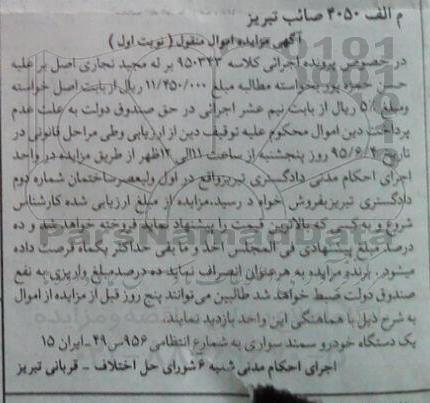 م الف ۴۰۵۰ صائب تبریز
آگهی مزایده اموال منقول ( نوبت اول )
در خصوص پرونده اجرائی کلاسه ۹۵۰۳۴۳ بر له مجید نجاری اصل بر علیه
حسن حمزه پور بخواسته مطالبه مبلغ ۱۱/۴۵۰/۰۰۰ ریال از بابت اصل خواسته
ومبلغ ۵٪ ریال از بابت نیم عشر اجرائی در حق صندوق دولت به علت عدم
پرداخت دین اموال محکوم علیه توقیف دین از ارزیابی وطی مراحل قانونی در
تاریخ روز پنجشنبه از ساعت ۱۱الی ۱۲ظهر از طریق مزایده در واحد
اجرای احکام مدنی دادگستری تبریزواقع در اول ولیعصرساختمان شماره دوم
دادگستری تبریزبفروش خواه د رسید.مزایده از مبلغ ارزیابی شده کارشناس
شروع و به کسی که بالاترین قیمت را پیشنهاد نماید فروخته خواهد شد و ده
درصد مبلغ پیشنهادی فی المجلس اخذ و ما بقی حداکثر یکماه فرصت داده
میشود. برنده مزایده به هر عنوان انصراف نماید ده درصدمبلغ واریزی به نفع
صندوق دولت ضبط خواهد شد طالبین می توانند پنج روز قبل از مزایده از اموال
به شرح ذیل با هماهنگی این واحد بازدید نمایند.
یک دستگاه خودرو سمند سواری به شمارع انتظامی ۹۵۶س۴۹ـایران ۱۵
اجرای احکام مدنی شعبه ۶ شورای حل اختلاف - قربانی تبریز
ParsNamadData